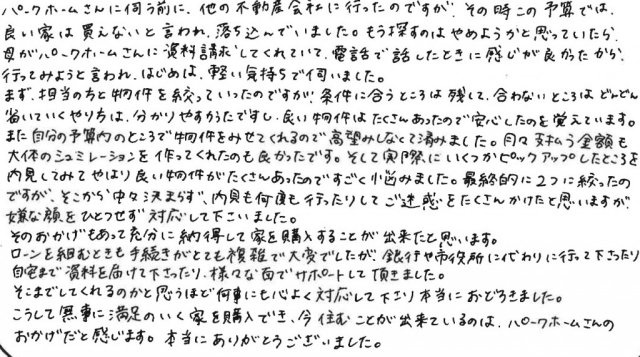 パークホームさんに伺う前に、他の不動産会社に行ったのですが、その時この予算では、
良い家は買えないと言われ、落ち込んでいました。もう探すのはやめようかと思っていたら、
母がパークホームさんに資料請求してくれていて、電話で話したときに感じが良かったから、
行ってみようと言われ、はじめは、軽い気持ちで伺いました。
まず、担当の方と物件を絞っていったのですが、条件に合うところは残して、合わないところはどんどん
省いていくやり方は、分かりやすかったですし、良い物件はたくさんあったので安心したのを覚えています。
また自分の予算内のところで物件をみせてくれるので高望みしなくて済みました。月々支払う金額も
大体のシュミレーションを作ってくれたのも良かったです。そして実際にいくつかピックアップしたところを
内見してみてやはり良い物件がたくさんあったのですごく悩みました。最終的に2つに絞ったの
ですが、そこから中々決まらず、内見も何度も行ったりしてご迷惑をたくさんかけたと思いますが、
嫌な顔をひとつせず対応して下さいました。
そのおかげもあって充分に納得して家を購入することが出来たと思います。
ローンを組むときも手続きがとても複雑で大変でしたが、銀行や市役所に代わりに行って下さったり
自宅まで資料を届けて下さったり、様々な面でサポートして頂きました。
そこまでしてくれるのかと思うほど何事にも心よく対応して下さり本当におどろきました。
こうして無事に満足のいく家を購入でき、今住むことが出来ているのは、パークホームさんの
おかげだと感じます。本当にありがとうございました。